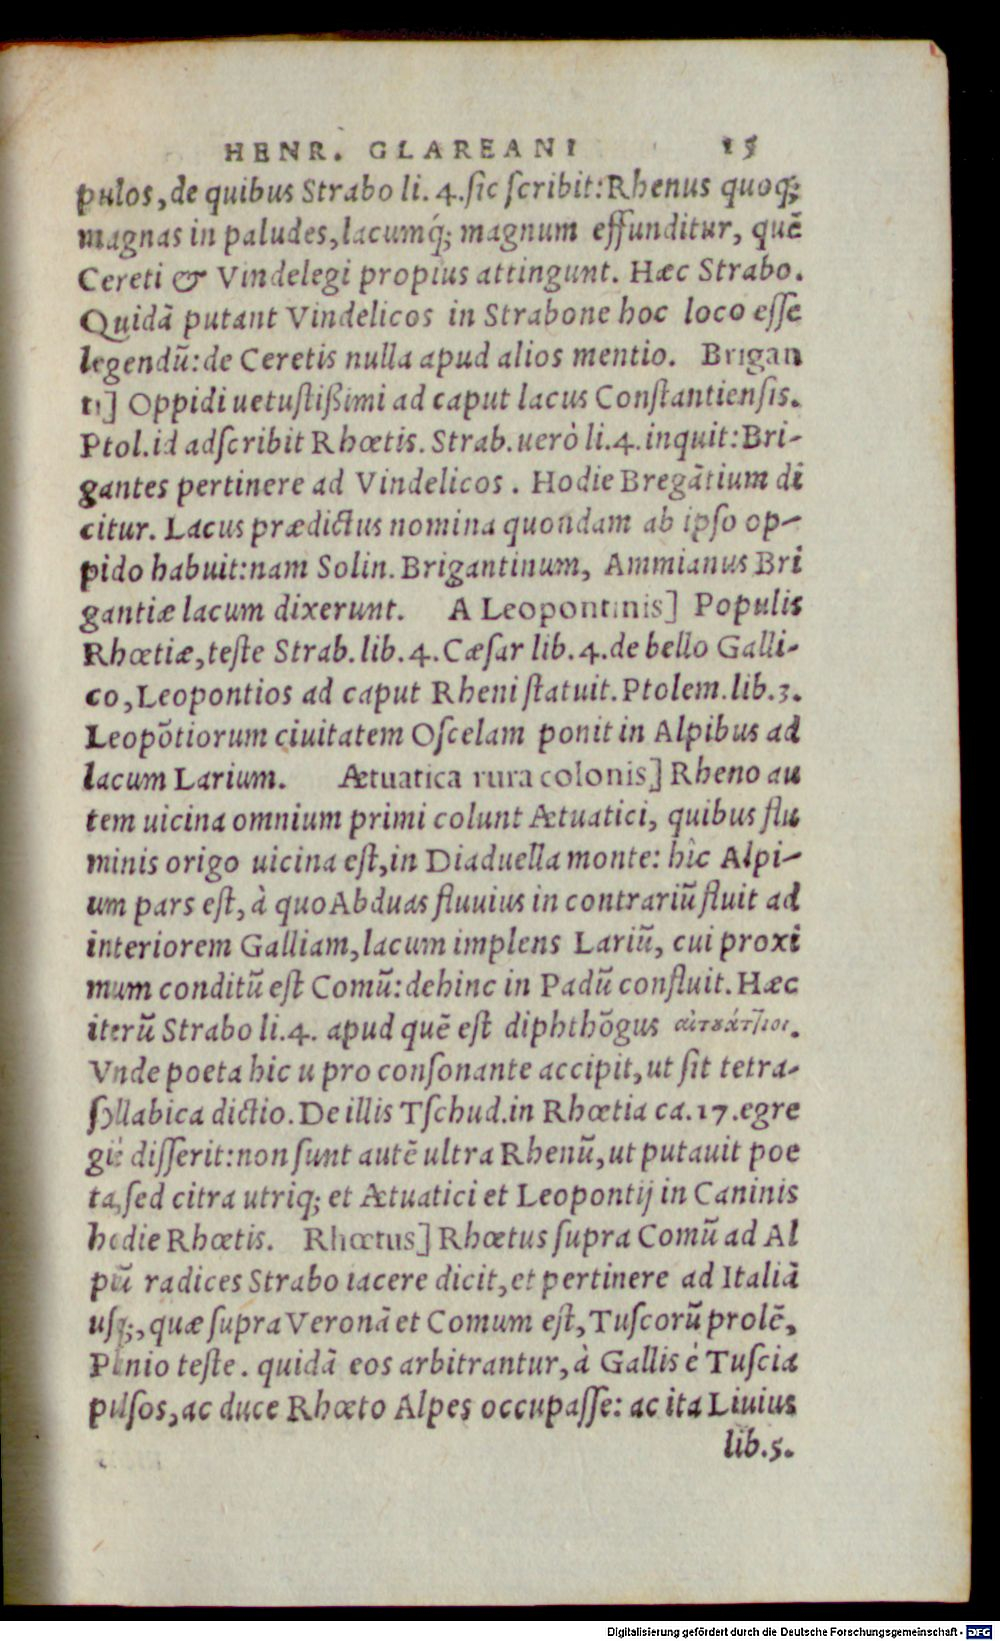 HENR. GLAREANI 15
pulos, de quibus Strabo li. 4. ſic ſcribit: Rhenus quoq;
magnas in paludes, lacumq́; magnum effunditur, quẽ
Cereti & Vindelegi propius attingunt. Hæc Strabo.
Quidã putant Vindelicos in Strabone hoc loco eſſe
legendũ: de Ceretis nulla apud alios mentio. Brigan
ti] Oppidi uetuſtißimi ad caput lacus Conſtantienſis.
Ptol. id adſcribit Rhœtis. Strab. uerò li. 4. inquit: Bri-
gantes pertinere ad Vindelicos. Hodie Bregãtium di
citur. Lacus prædictus nomina quondam ab ipſo op-
pido habuit: nam Solin. Brigantinum, Ammianus Bri
gantiæ lacum dixerunt. A Leopontinis] Populis
Rhœtiæ, teſte Strab. lib. 4. Cæſar lib. 4. de bello Galli-
co, Leopontios ad caput Rheni ſtatuit. Ptolem. lib. 3.
Leopõtiorum ciuitatem Oſcelam ponit in Alpibus ad
lacum Larium. Ætuatica rura colonis] Rheno au
tem uicina omnium primi colunt Ætuatici, quibus flu
minis origo uicina eſt, in Diaduella monte: hîc Alpi-
um pars eſt, à quo Abduas fluuius in contrariũ fluit ad
interiorem Galliam, lacum implens Lariũ, cui proxi
mum conditũ eſt Comũ: dehinc in Padũ confluit. Hæc
iterũ Strabo li. 4. apud quẽ eſt diphthõgus
Vnde poeta hic u pro conſonante accipit, ut ſit tetra-
ſyllabica dictio. De illis Tſchud. in Rhœtia ca. 17. egre
giè diſſerit: non ſunt autẽ ultra Rhenũ, ut putauit poe
ta, ſed citra utriq; et Ætuatici et Leopontij in Caninis
hodie Rhœtis. Rhœtus] Rhœtus ſupra Comũ ad Al
piũ radices Strabo iacere dicit, et pertinere ad Italiã
uſq;, quæ ſupra Veronã et Comum eſt, Tuſcorũ prolẽ,
Plinio teſte. quidã eos arbitrantur, à Gallis è Tuſcia
pulſos, ac duce Rhœto Alpes occupaſſe: ac ita Liuius
lib. 5.
Digitalisierung gefördert durch die Deutsche Forschungsgemeinschaft - DFG